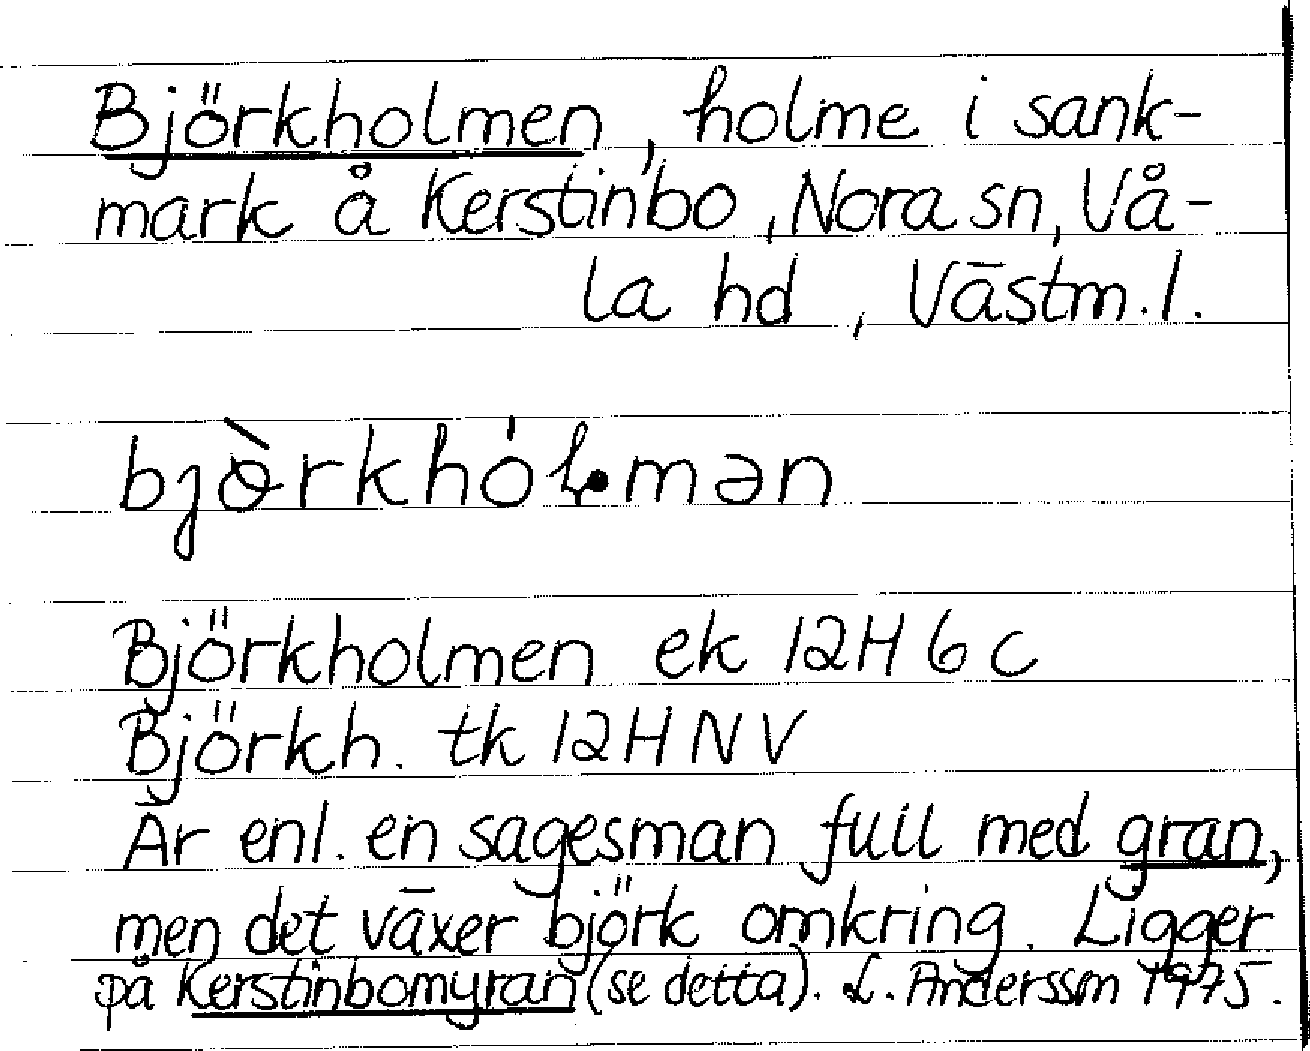 Björkholmen, holme i sank-
mark å Kerstinbo, Nora sn, Vå-
la hd, Västm.l.
bjὸrkhól.mən
Björkholmen ek 12H 6c
Björkh. tk 12H NV
Är enl. en sagesman full med gran,
men det växer björk omkring. Ligger
på Kerstinbomyran (se detta). L. Andersson 1975.